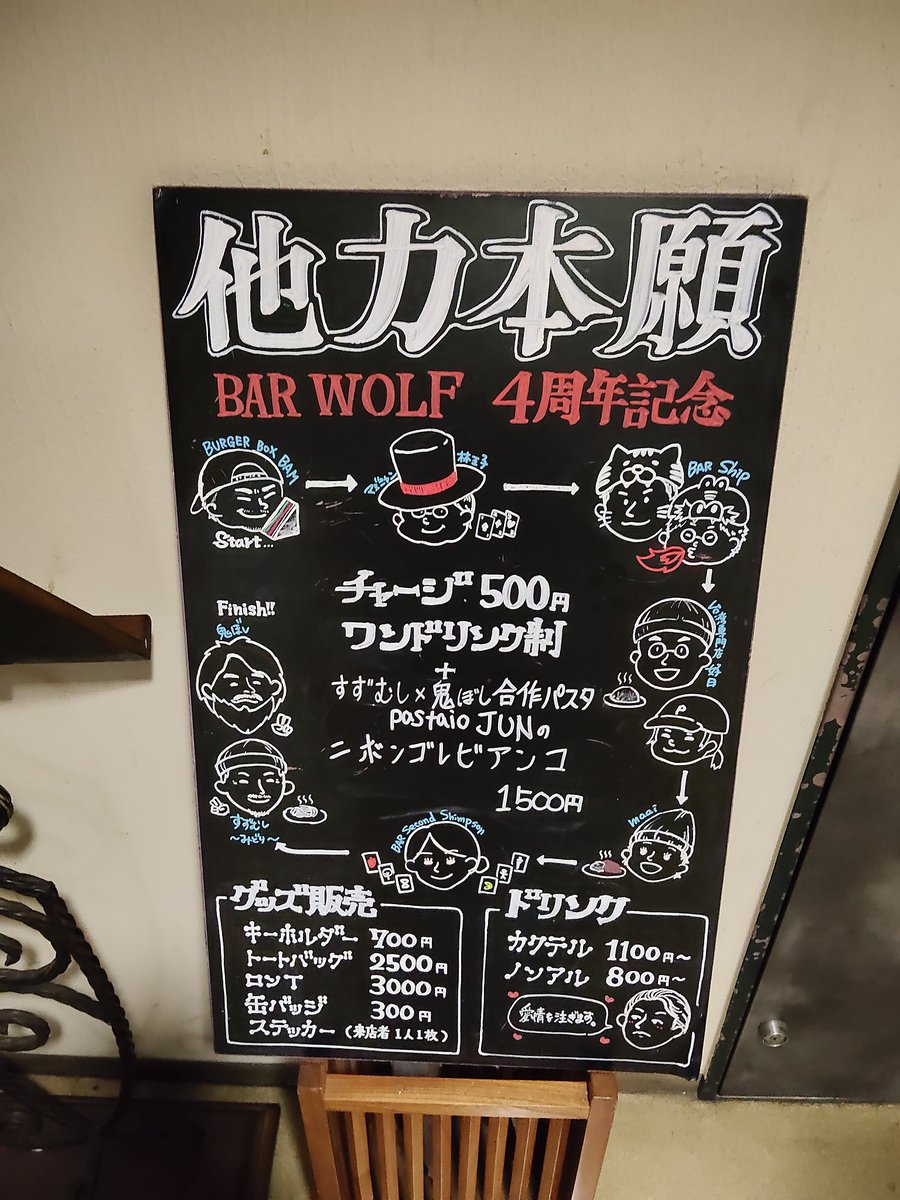 他力本願
BAR WOLF 4周年記念
BURGER BOX BAM
Start...
マジシャン
林王子
BAR Ship
台湾専門店 好日
maai
BAR Second Shimpson
すずむし
〜みどり〜
Finish!!
鬼ぼし
チャージ 500円
ワンドリンク制
+
すずむし×鬼ぼし合作パスタ
pastaio JUNの
ニボンゴレビアンコ
1500円
グッズ販売
キーホルダー 700円
トートバッグ 2500円
ロンT 3000円
缶バッジ 300円
ステッカー (来店者1人1枚)
ドリンク
カクテル 1100円〜
ノンアル 800円〜
愛情を注ぎます。